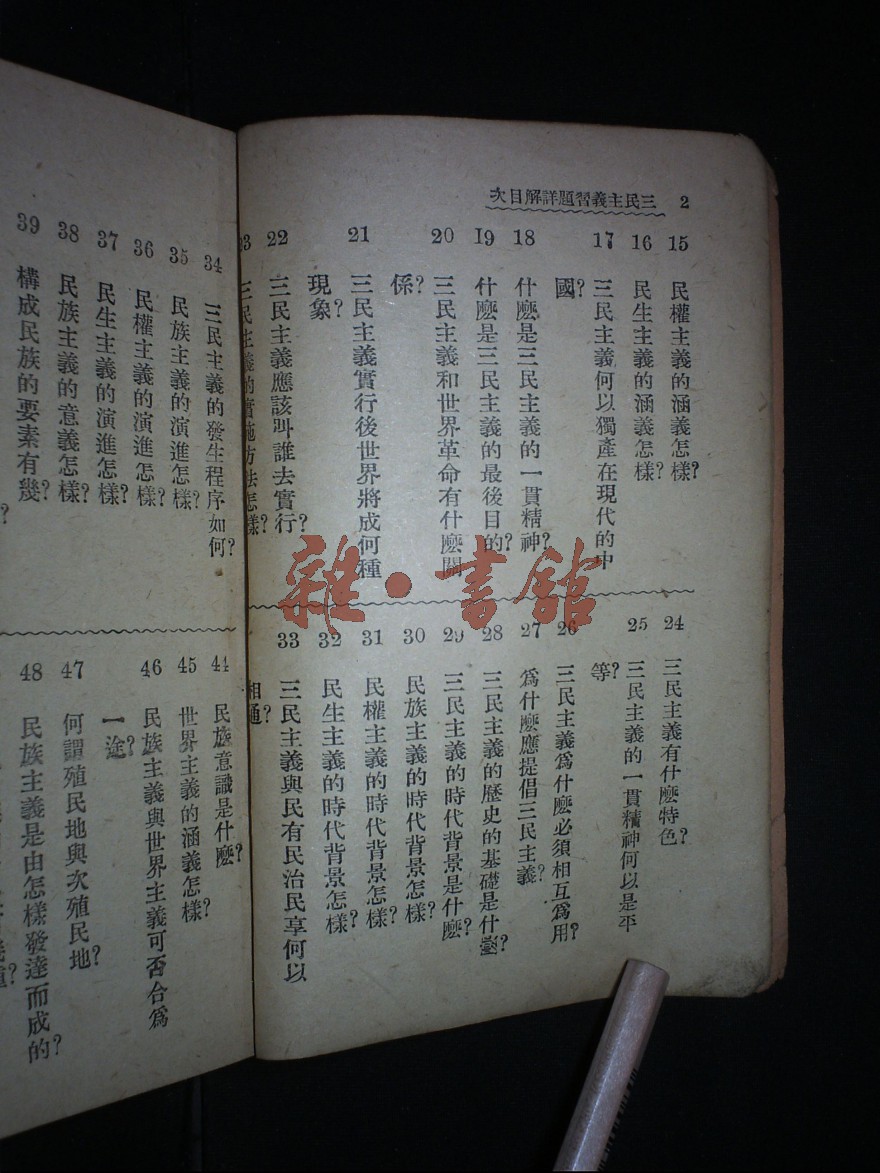 2 三民主義習題詳解目次
15 民權主義的涵義怎樣?
16 民生主義的涵義怎樣?
17 三民主義何以獨產在現代的中
國?
18 什麽是三民主義的一貫精神?
19 什麽是三民主義的最後目的?
20 三民主義和世界革命有什麽關
係?
21 三民主義實行後世界將成何種
現象?
22 三民主義應該叫誰去實行?
23 三民主義的實施方法怎樣?
24 三民主義有什麽特色?
25 三民主義的一貫精神何以是平
等?
26 三民主義爲什麽必須相互爲用?
27 爲什麽應提倡三民主義?
28 三民主義的歷史的基礎是什麽?
29 三民主義的時代背景是什麽?
30 民族主義的時代背景怎樣?
31 民權主義的時代背景怎樣?
32 民生主義的時代背景怎樣?
33 三民主義與民有民治民享何以
相通?
34 三民主義的發生程序如何?
35 民族主義的演進怎樣?
36 民權主義的演進怎樣?
37 民生主義的演進怎樣?
38 民族主義的意義怎樣?
39 構成民族的要素有幾?
44 民族意識是什麽?
45 世界主義的涵義怎樣?
46 民族主義與世界主義可否合爲
一途?
47 何謂殖民地與次殖民地?
48 民族主義是由怎樣發達而成的?
雜·書館